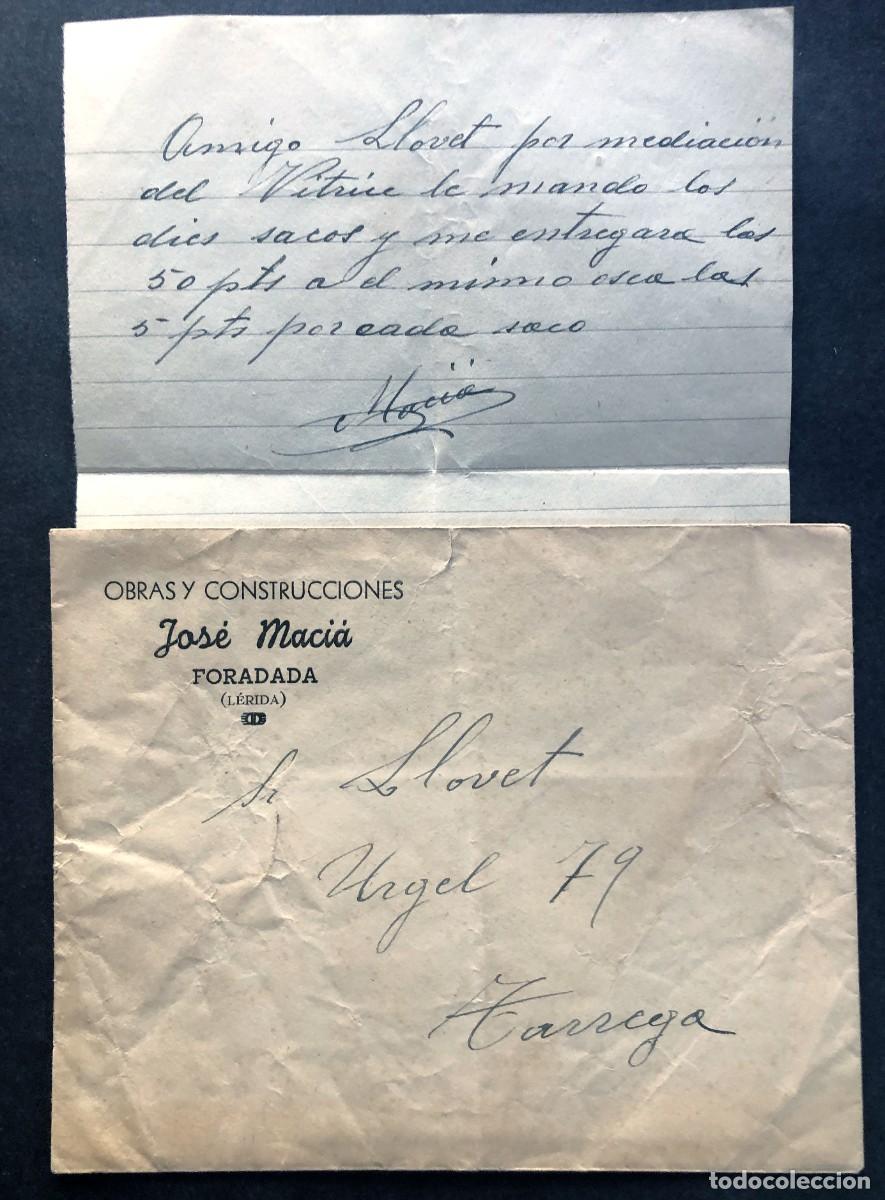 Amigo Llovet por mediación
del Vitrie le mando los
dies sacos y me entregara las
50 pts a el mismo osea las
5 pts por cada saco
Maciá
OBRAS Y CONSTRUCCIONES
José Maciá
FORADADA
(LÉRIDA)
Sr Llovet
Urgel 79
Tarrega
todocoleccion